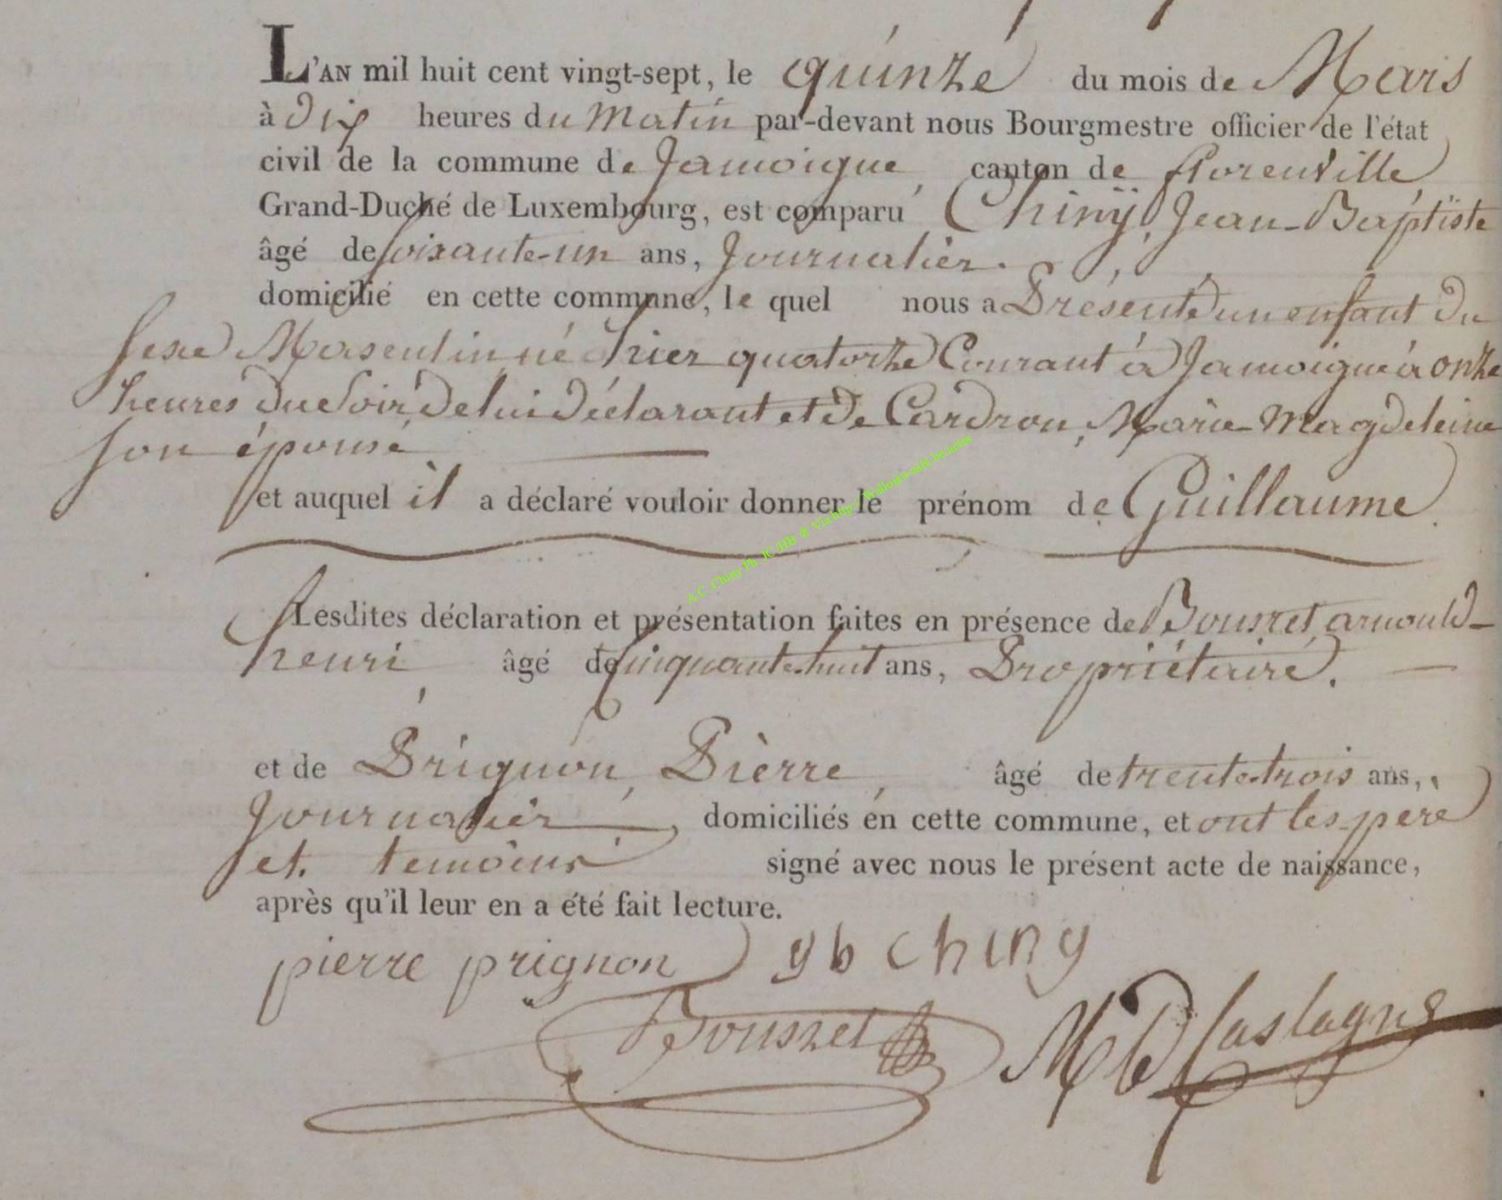 L'AN mil huit cent vingt-sept, le quinze du mois de Mars
à dix heures du matin par-devant nous Bourgmestre officier de l'état
civil de la commune de Jamoigne, canton de florenville,
Grand-Duché de Luxembourg, est comparu Chinÿ, Jean-Baptiste
âgé de soixante-un ans, Journalier.
domicilié en cette commune, le quel nous a Présenté un enfant du
sexe Masculin, né hier quatorze Courant à Jamoigne à onze
heures du Soir de lui déclarant et de Cardron, Marie-Magdeleine
son épouse
et auquel il a déclaré vouloir donner le prénom de Guillaume.
Lesdites déclaration et présentation faites en présence de arnould-
henri, âgé de cinquante-huit ans, Propriétaire.
et de Prignon, Pierre, âgé de trente-trois ans,
Journalier, domiciliés en cette commune, et ont les père
et temoins signé avec nous le présent acte de naissance,
après qu'il leur en a été fait lecture.
pierre prignon yb chiny